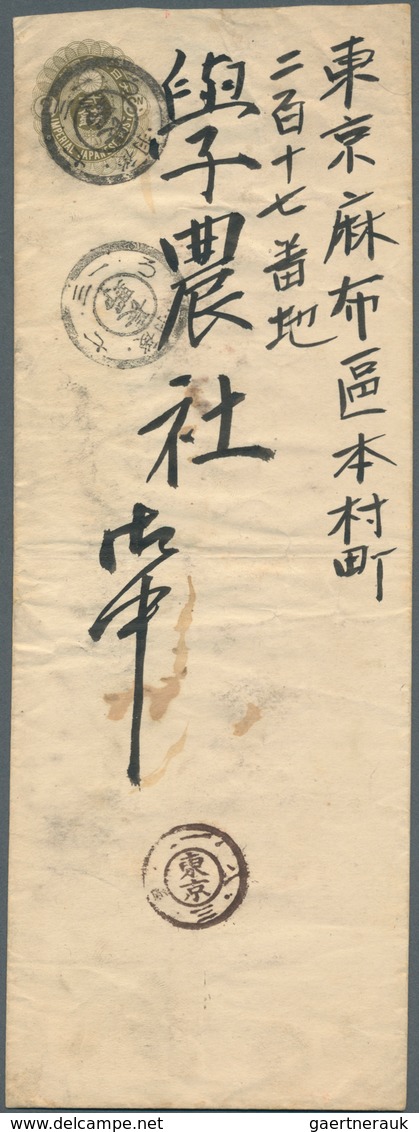 東京麻布區本村町
二百十七番地
學農社
御中
IMPERIAL JAPANESE
東京
gaertnerauk